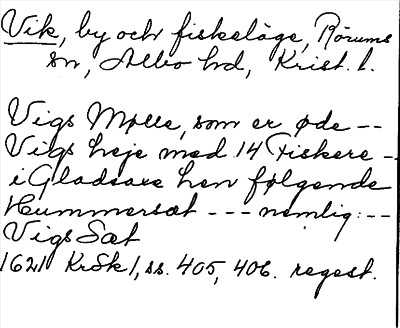 Vik, by och fiskeläge, Rörums
sn, Albo hd, Krist. l.
Vigs Mølle, som er øde --
Vigs leje med 14 Fiskere --
i Gladsaxe hen følgende
Hummersæt --- nemlig: --
Vigs Sæt
1621 KrSk 1, ss. 405, 406. regest.